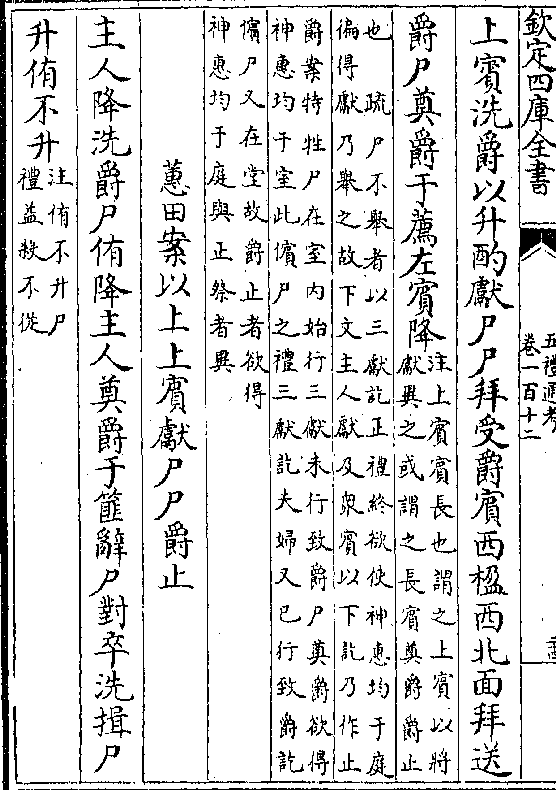 欽定四庫全書
五禮通考
卷一百十二
上賓洗爵以升酌獻尸尸拜受爵賓西楹西北面拜送
爵尸奠爵于薦左賓降
注上賓賓長也謂之上賓以將
獻異之或謂之長賓奠爵爵止
也 疏尸不舉者以三獻訖正禮終欲使神惠均于庭
徧得獻乃舉之故下文主人獻及衆賓以下訖乃作止
爵案特牲尸在室内始行三獻未行致爵尸奠爵欲得
神惠均于室此儐尸之禮三獻訖夫婦又已行致爵訖
儐尸又在堂故爵止者欲得
神惠均于庭與正祭者異
蕙田案以上上賓獻尸尸爵止
主人降洗爵尸侑降主人奠爵于篚辭尸對卒洗揖尸
升侑不升
注侑不升尸
禮益殺不從